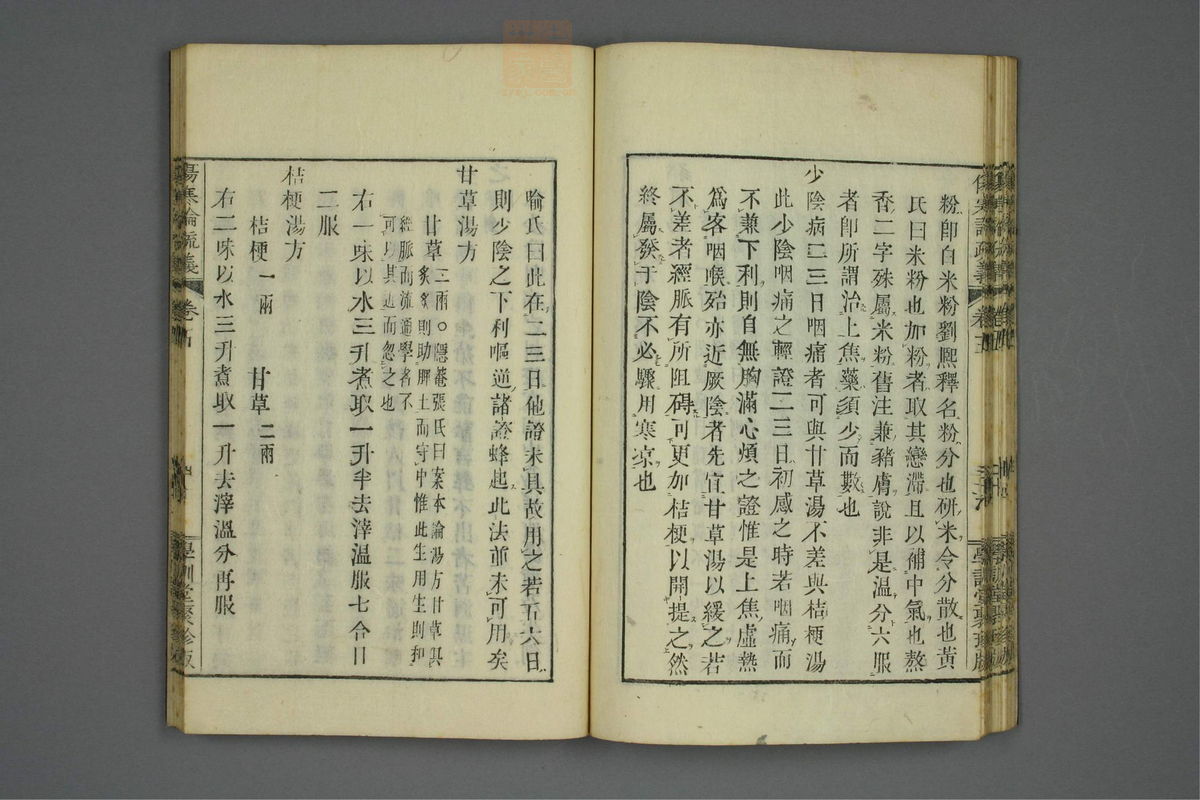 粉卽白米粉劉熙釋名粉分也硏米令分散也黃
氏曰米粉也加粉者取其戀滯且以補中氣也熬
香二字殊屬米粉舊注兼豬膚說非是溫分六服
者卽所謂治上焦藥須少而數也
少陰病二三日咽痛者可與甘草湯不差與桔梗湯
此少陰咽痛之輕證二三日初感之時若咽痛而
不兼下利則自無胸滿心煩之證惟是上焦虛熱
爲客咽喉殆亦近厥陰者先宜甘草湯以緩之若
不差者經脈有所阻碍可更加桔梗以開提之然
終屬發于陰不必驟用寒凉也
喻氏曰此在二三日他證未具故用之若五六日
則少陰之下利嘔逆諸證蜂起此法並未可用矣
甘草湯方
甘草二兩○隱菴張氏曰案本論湯方甘草俱
炙炙則助脾土而守中惟此生用生則和
經脈而流通學者不
可以其近而忽之也
右一味以水三升煮取一升半去滓溫服七合日
二服
桔梗湯方
桔梗一兩　甘草二兩
右二味以水三升煮取一升去滓溫分再服
傷寒論疏義
卷
學訓堂聚珍版